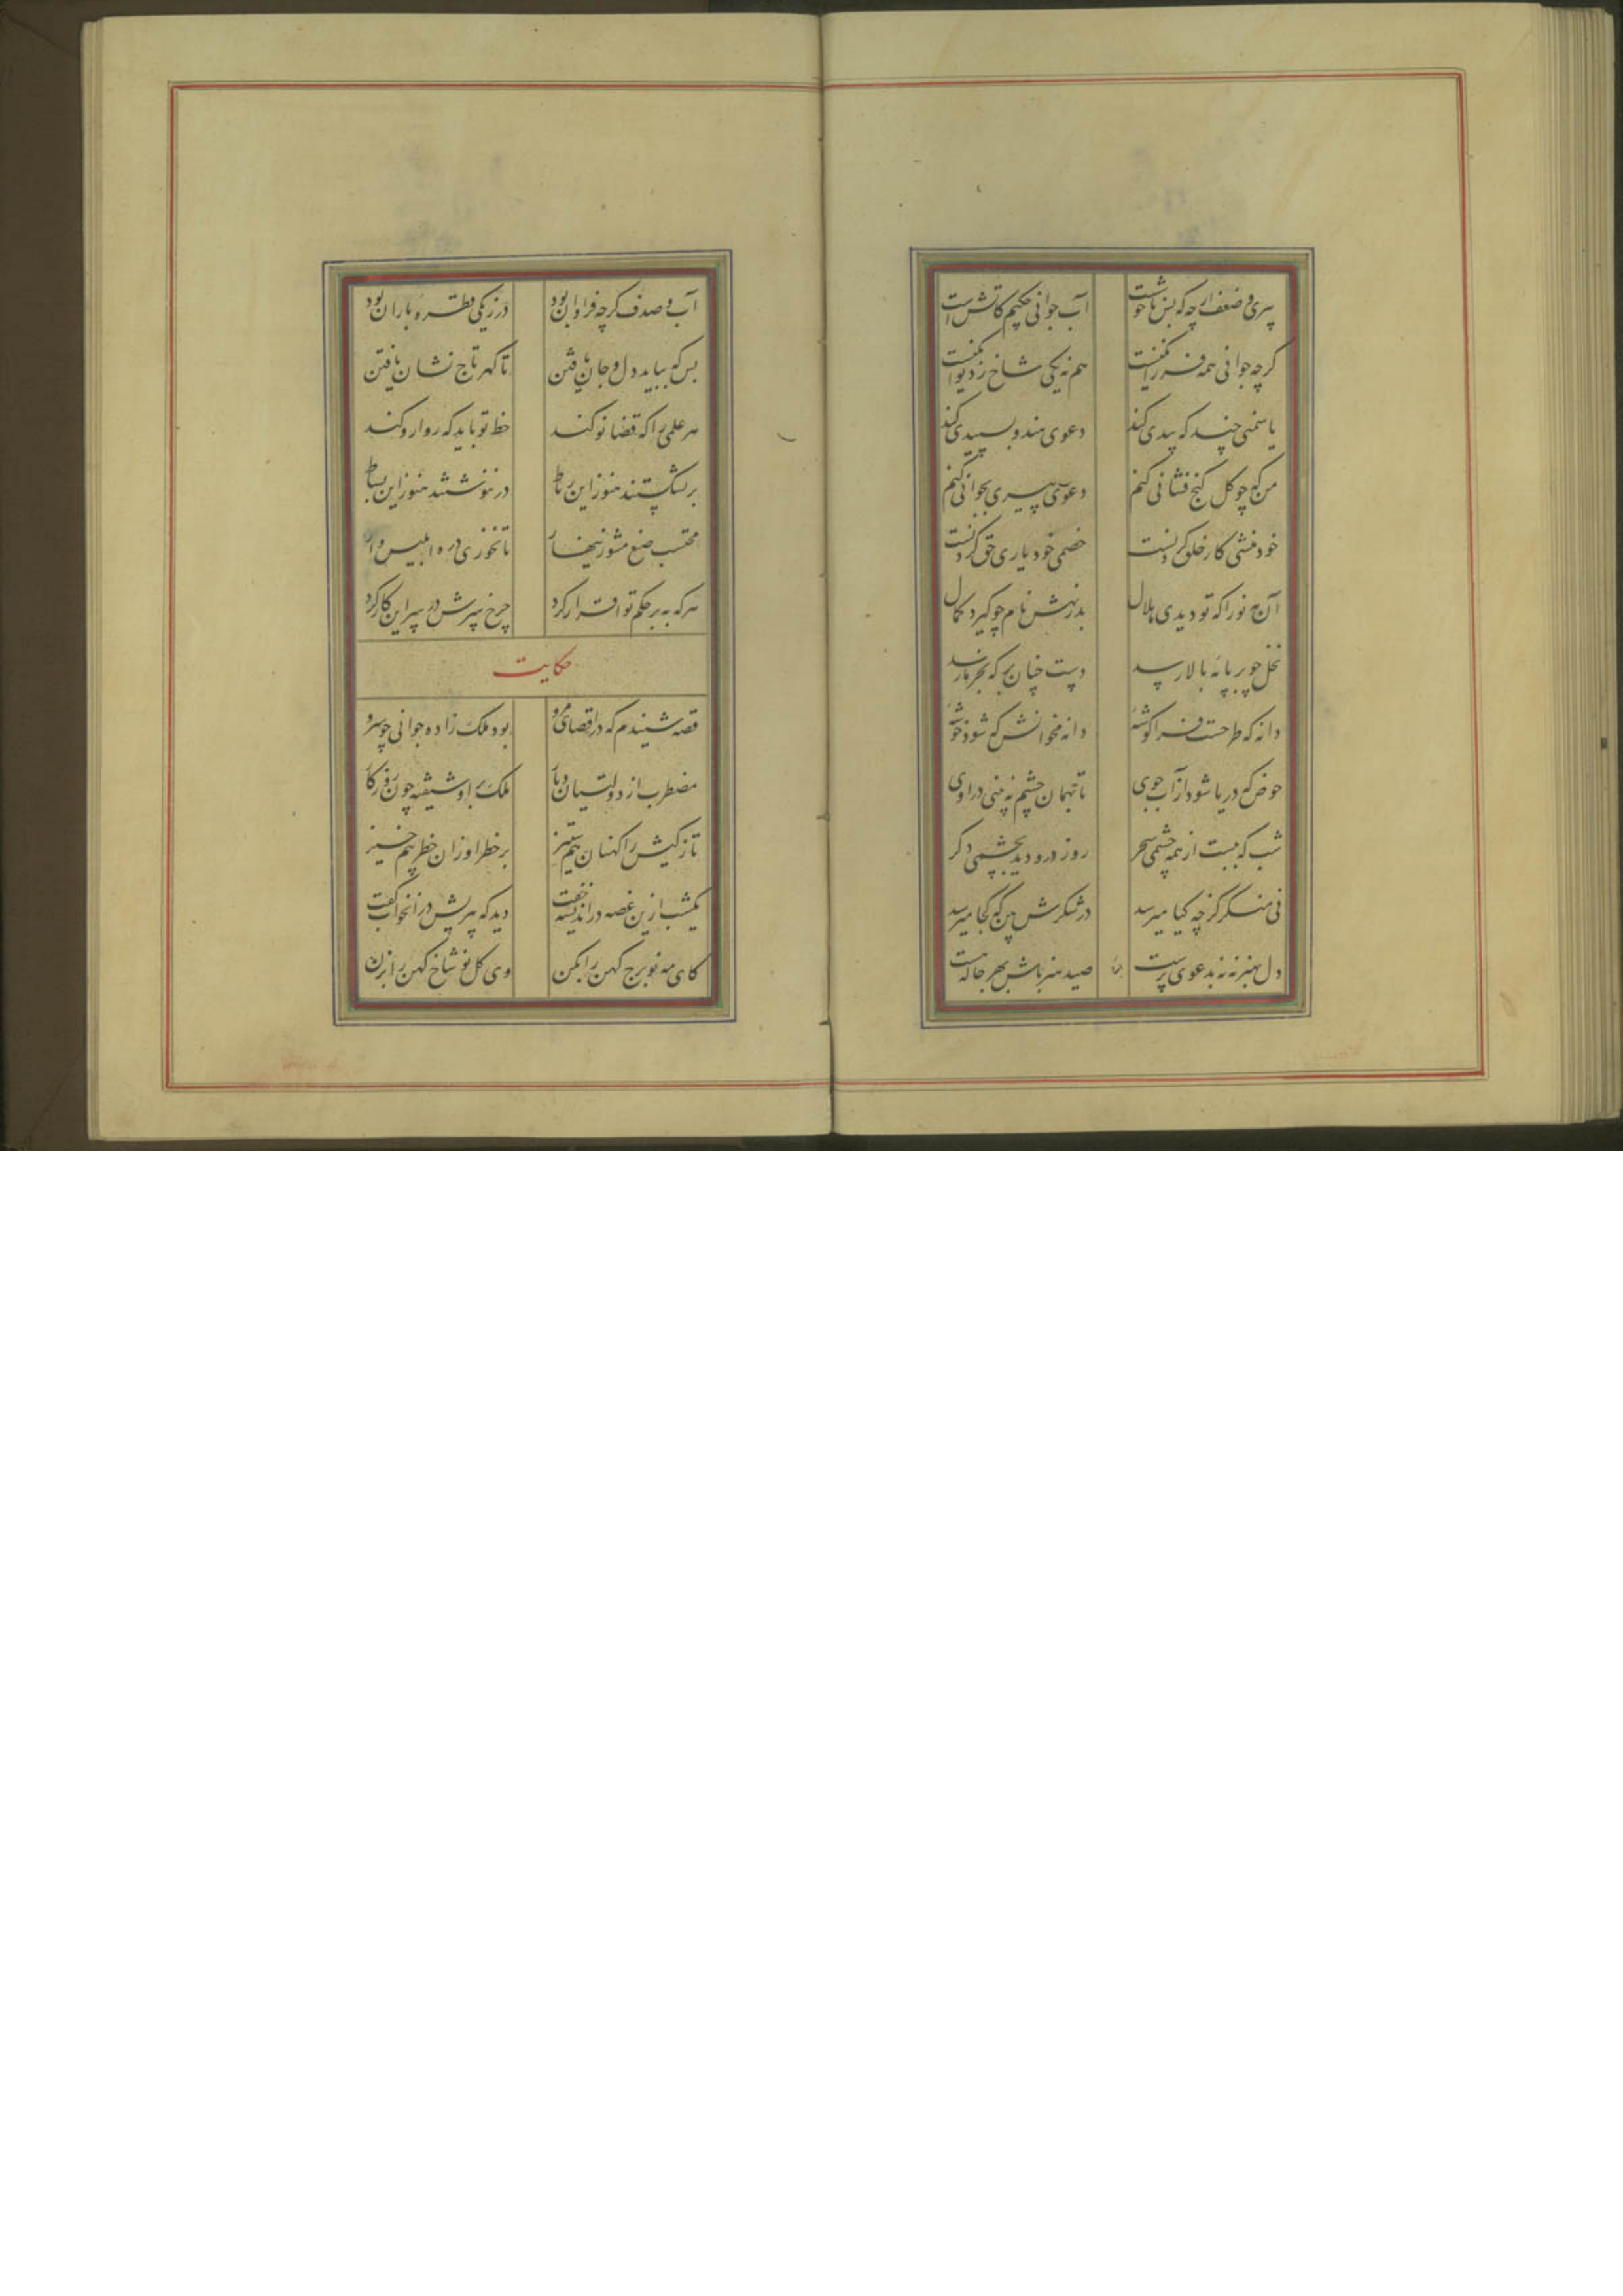 پیری و ضعف ارچه که بس ناخوشست آب جوانی چکنم کاتش است
کرچه جوانی همه فرزانکیست هم نه یکی شاخ ز دیوانکیست
یاسمنی چند که بیدی کند دعوی هندو بسپیدی کند
من که چو کل کنج فشانی کنم دعوی پیری بجوانی کنم
خود منشی کار خلق کردنست خصمی خود یاری حق کردنست
آن مه نو را که تو دیدی هلال بدر نهش نام چو کیرد کمال
نخل چو بر پایه بالا رسد دست چنان کش که بخرما رسد
دانه که طرحست فرا کوشهٔ دانه مخوانش که شود خوشهٔ
حوض که دریا شود از آب جوی تا بهمان چشم نه بینی در اوی
شب که ببست از همه چشمی سحر روز درو دید بچشمی دکر
نی منکر کز چه کیا میرسد در شکرش بین که کجا میرسد
دل بهنر نه نه بدعوی پرست صید هنر باش بهر جا که هست
آب صدف کرچه فراوان بود در ز یکی قطره باران بود
بس که بباید دل و جان یافتن تا کهر تاج نشان یافتن
هر علمی را که قضا نو کند خط تو باید که روا رو کند
برنشکستند هنوز این رباط درننوشتند هنوز این بساط
محتسب صنع مشو زینهار تا نخوری دره ابلیس وار
هر که نه بر حکم تو اقرار کرد چرخ سرش در سر این کار کرد
حکایت
قصه شنیدم که در اقصای مرو بود ملک زاده جوانی چو سرو
مضطرب از دولتیان دیار ملک برو شیفته چون روزکار
تازکیش را کهنان در ستیز بر خطر او زان خطر بیم خیز
یکشب ازین غصه در اندیشه خفت دید که پیریش در آنخواب کفت
کای مه نو برج کهن را بکن وی کل نو شاخ کهن را بزن